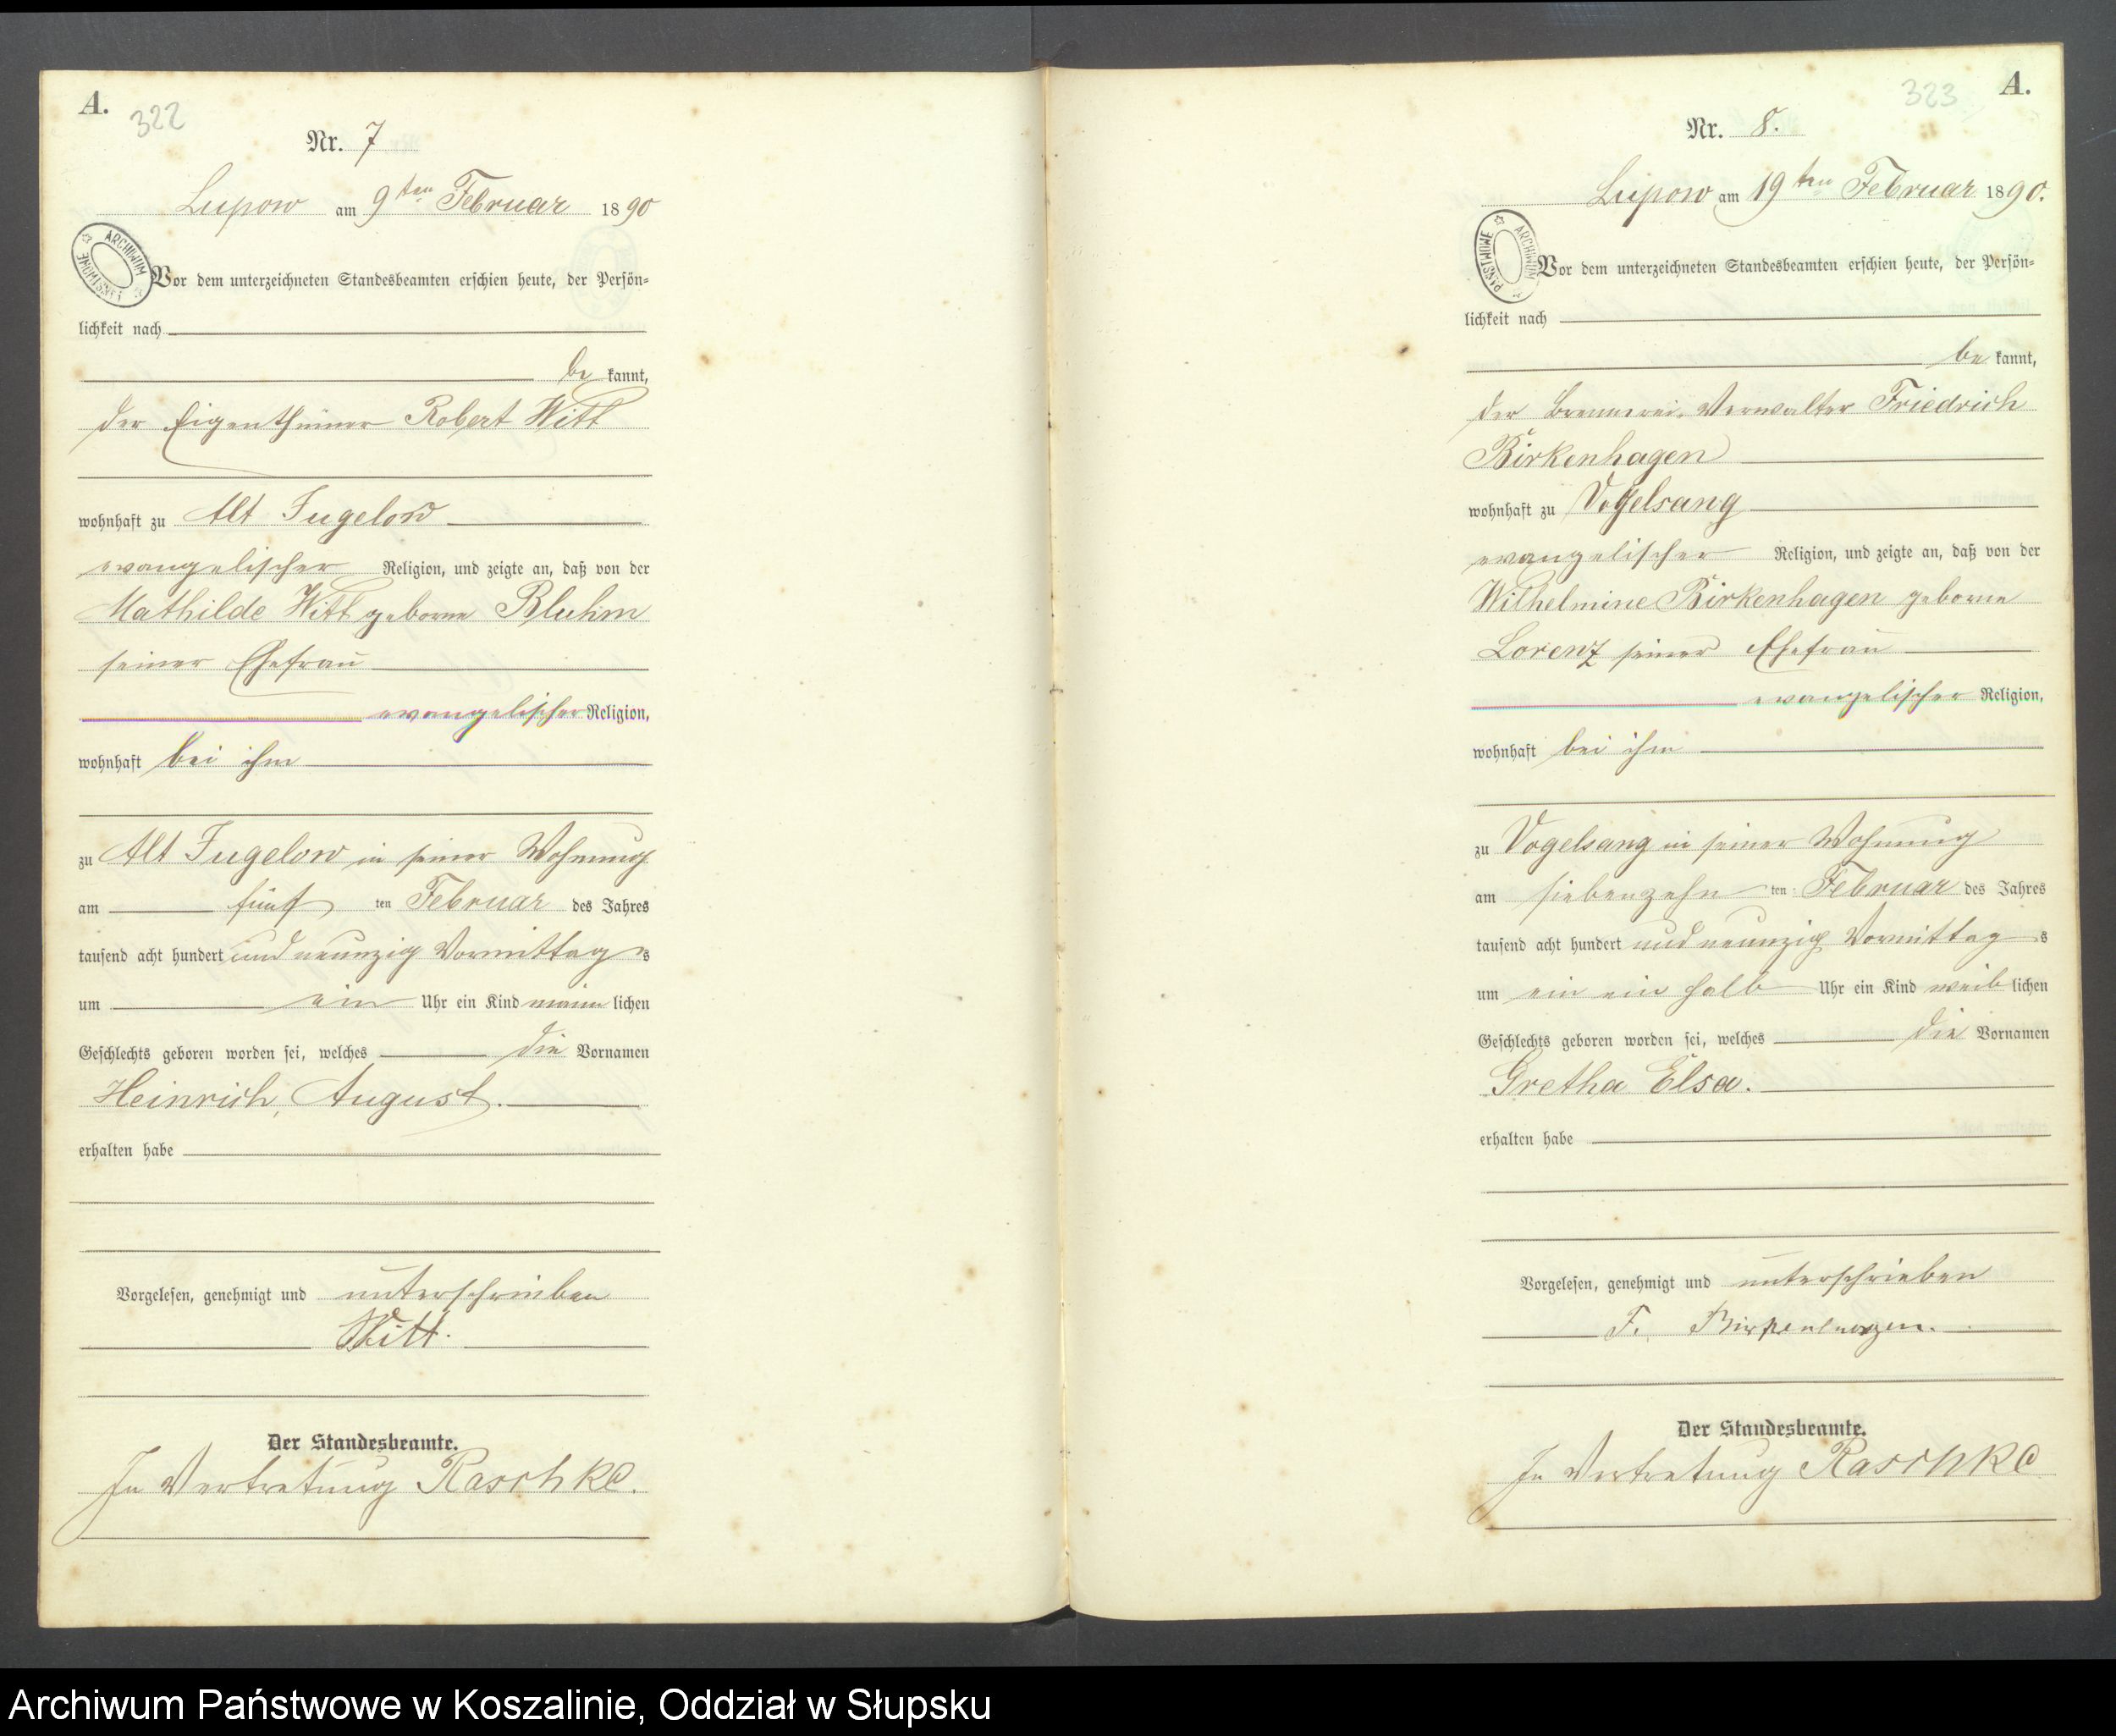 A.
322
Nr. 7
Lupow am 9ten Februar 1890
ARCHIWUM PAŃSTWOWE
Vor dem unterzeichneten Standesbeamten erschien heute, der Persön-
lichkeit nach
be kannt,
der Eigenthümer Robert Witt
wohnhaft zu Alt Jugelow
evangelischer Religion, und zeigte an, daß von der
Mathilde Witt geborne Bluhm
seiner Ehefrau
evangelischer Religion,
wohnhaft bei ihm
zu Alt Jugelow in seiner Wohnung
am fünf ten Februar des Jahres
tausend acht hundert und neunzig Vormittag s
um ein Uhr ein Kind männ lichen
Geschlechts geboren worden sei, welches die Vornamen
Heinrich, August.
erhalten habe
Vorgelesen, genehmigt und unterschrieben
Witt.
Der Standesbeamte.
In Vertretung Raschke.
323
A.
Nr. 8.
Lupow am 19ten Februar 1890.
ARCHIWUM PAŃSTWOWE
Vor dem unterzeichneten Standesbeamten erschien heute, der Persön-
lichkeit nach
be kannt,
der Brennerei-Verwalter Friedrich
Birkenhagen
wohnhaft zu Vogelsang
evangelischer Religion, und zeigte an, daß von der
Wilhelmine Birkenhagen geborne
Lorenz seiner Ehefrau
evangelischer Religion,
wohnhaft bei ihm
zu Vogelsang in seiner Wohnung
am siebenzehn ten Februar des Jahres
tausend acht hundert und neunzig Vormittag s
um ein ein halb Uhr ein Kind weib lichen
Geschlechts geboren worden sei, welches die Vornamen
Gretha Elsa.
erhalten habe
Vorgelesen, genehmigt und unterschrieben
F. Birkenhagen.
Der Standesbeamte.
In Vertretung Raschke
Archiwum Państwowe w Koszalinie, Oddział w Słupsku